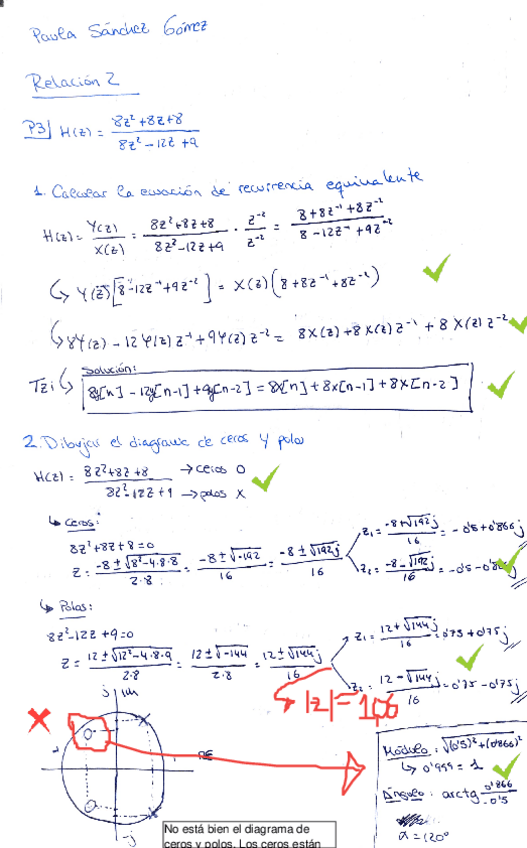 Paula Sánchez Gómez
Relación 2
P3| H(z) = (8z² + 8z + 8) / (8z² - 12z + 9)
1. Calcular la ecuación de recurrencia equivalente
H(z) = Y(z)/X(z) = (8z² + 8z + 8)/(8z² - 12z + 9) · z⁻²/z⁻² = (8 + 8z⁻¹ + 8z⁻²)/(8 - 12z⁻¹ + 9z⁻²)
↳ Y(z)[8 - 12z⁻¹ + 9z⁻²] = X(z)(8 + 8z⁻¹ + 8z⁻²)
↳ 8Y(z) - 12Y(z)z⁻¹ + 9Y(z)z⁻² = 8X(z) + 8X(z)z⁻¹ + 8X(z)z⁻²
Solución:
Tzi ↳ 8y[n] - 12y[n-1] + 9y[n-2] = 8x[n] + 8x[n-1] + 8x[n-2]
2. Dibujar el diagrama de ceros y polos
H(z) = (8z² + 8z + 8)/(8z² - 12z + 9) → ceros O
→ polos X
↳ Ceros:
8z² + 8z + 8 = 0
z = (-8 ± √(8² - 4·8·8))/(2·8) = (-8 ± √-192)/16 = (-8 ± √192 j)/16
z₁ = (-8 + √192 j)/16 = -0'5 + 0'866j
z₂ = (-8 - √192 j)/16 = -0'5 - 0'866j
↳ Polos:
8z² - 12z + 9 = 0
z = (12 ± √(12² - 4·8·9))/(2·8) = (12 ± √-144)/(2·8) = (12 ± √144 j)/16
z₁ = (12 + √144 j)/16 = 0'75 + 0'75j
z₂ = (12 - √144 j)/16 = 0'75 - 0'75j
|z| = 1,06
j Im
RE
-j
Módulo: √((0'5)² + (0'866)²)
↳ 0'999 = 1
Ángulo: arctg 0'866/-0'5
α = 120°
No está bien el diagrama de
ceros y polos. Los ceros están